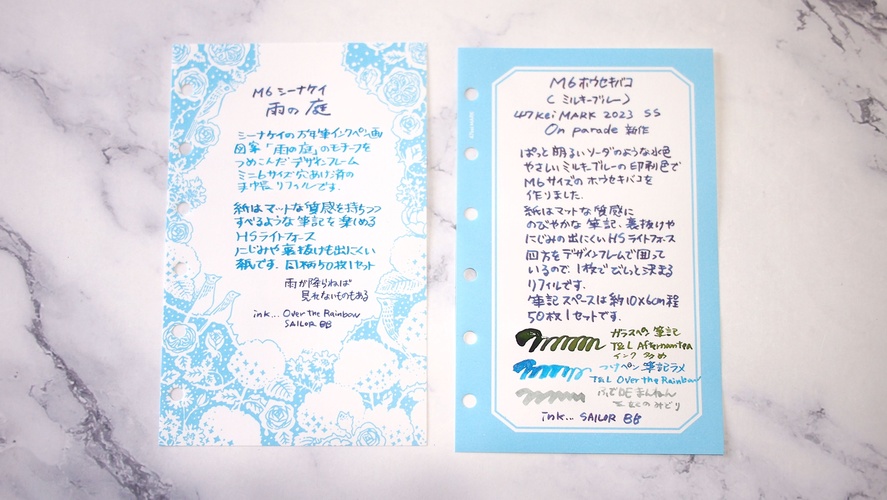 M6 シーナケイ
雨の庭
シーナケイの万年筆インクペン画
図案「雨の庭」のモチーフを
つめこんだデザインフレーム
ミニ6サイズ穴あけ済の
手帳リフィルです.
紙はマットな質感を持ちつつ
すべるような筆記を楽しめる
HSライトフォース
にじみや裏抜けも出にくい
紙です. 同柄50枚1セット
雨が降らねば
見れないものもある
ink... Over the Rainbow
SAILOR BB
M6 ホウセキバコ
(ミルキーブルー)
47 Kei MARK 2023 SS
On parade 新作
ぱっと明るいソーダのような水色
やさしいミルキーブルーの印刷色で
M6サイズのホウセキバコを
作りました.
紙はマットな質感に
のびやかな筆記、裏抜けや
にじみの出にくいHSライトフォース
四方をデザインフレームで囲って
いるので、1枚でぴしっと決まる
リフィルです.
筆記スペースは約10×6cm程
50枚1セットです.
ガラスペン筆記
T&L Afternoontea
インク多め
つけペン筆記ラメ
T&L Over the Rainbow
ふでDEまんねん
みどり
ink... SAILOR BB